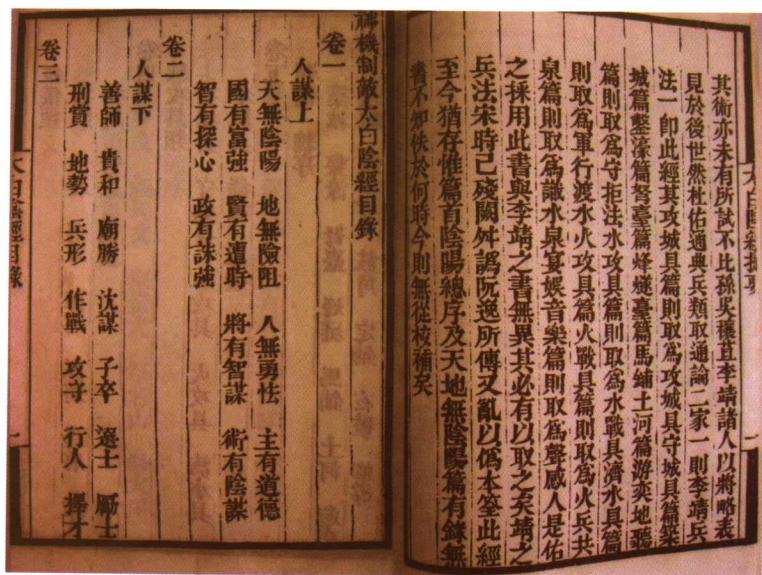 太白陰經提要
其術亦未有所試不比孫吳穰苴李靖諸人以將略表
見於後世然杜佑通典兵類取通論二家一則李靖兵
法一卽此經其攻城具篇則取爲攻城具守城具篇築
城篇鑿濠篇弩臺篇烽燧臺篇馬鋪土河篇游奕地聽
篇則取爲守拒法水攻具篇則取爲水戰具濟水具篇
則取爲軍行渡水火攻具篇火戰具篇則取爲火兵共
泉篇則取爲識水泉宴娛音樂篇則取爲聲感人是佑
之採用此書與李靖之書無異其必有以取之矣靖之
兵法宋時已殘闕舛譌阮逸所傳又亂以僞本筌此經
至今猶存惟篇首陰陽總序及天地無陰陽篇有錄無
書不知佚於何時今則無從核補矣
神機制敵太白陰經目錄
卷一
人謀上
天無陰陽 地無險阻 人無勇怯 主有道德
國有富強 賢有遭時 將有智謀 術有陰謀
智有探心 政有誅強
卷二
人謀下
善師 貴和 廟勝 沈謀 子卒 選士 勵士
刑賞 地勢 兵形 作戰 攻守 行人 才
卷三
太白陰經目錄
一